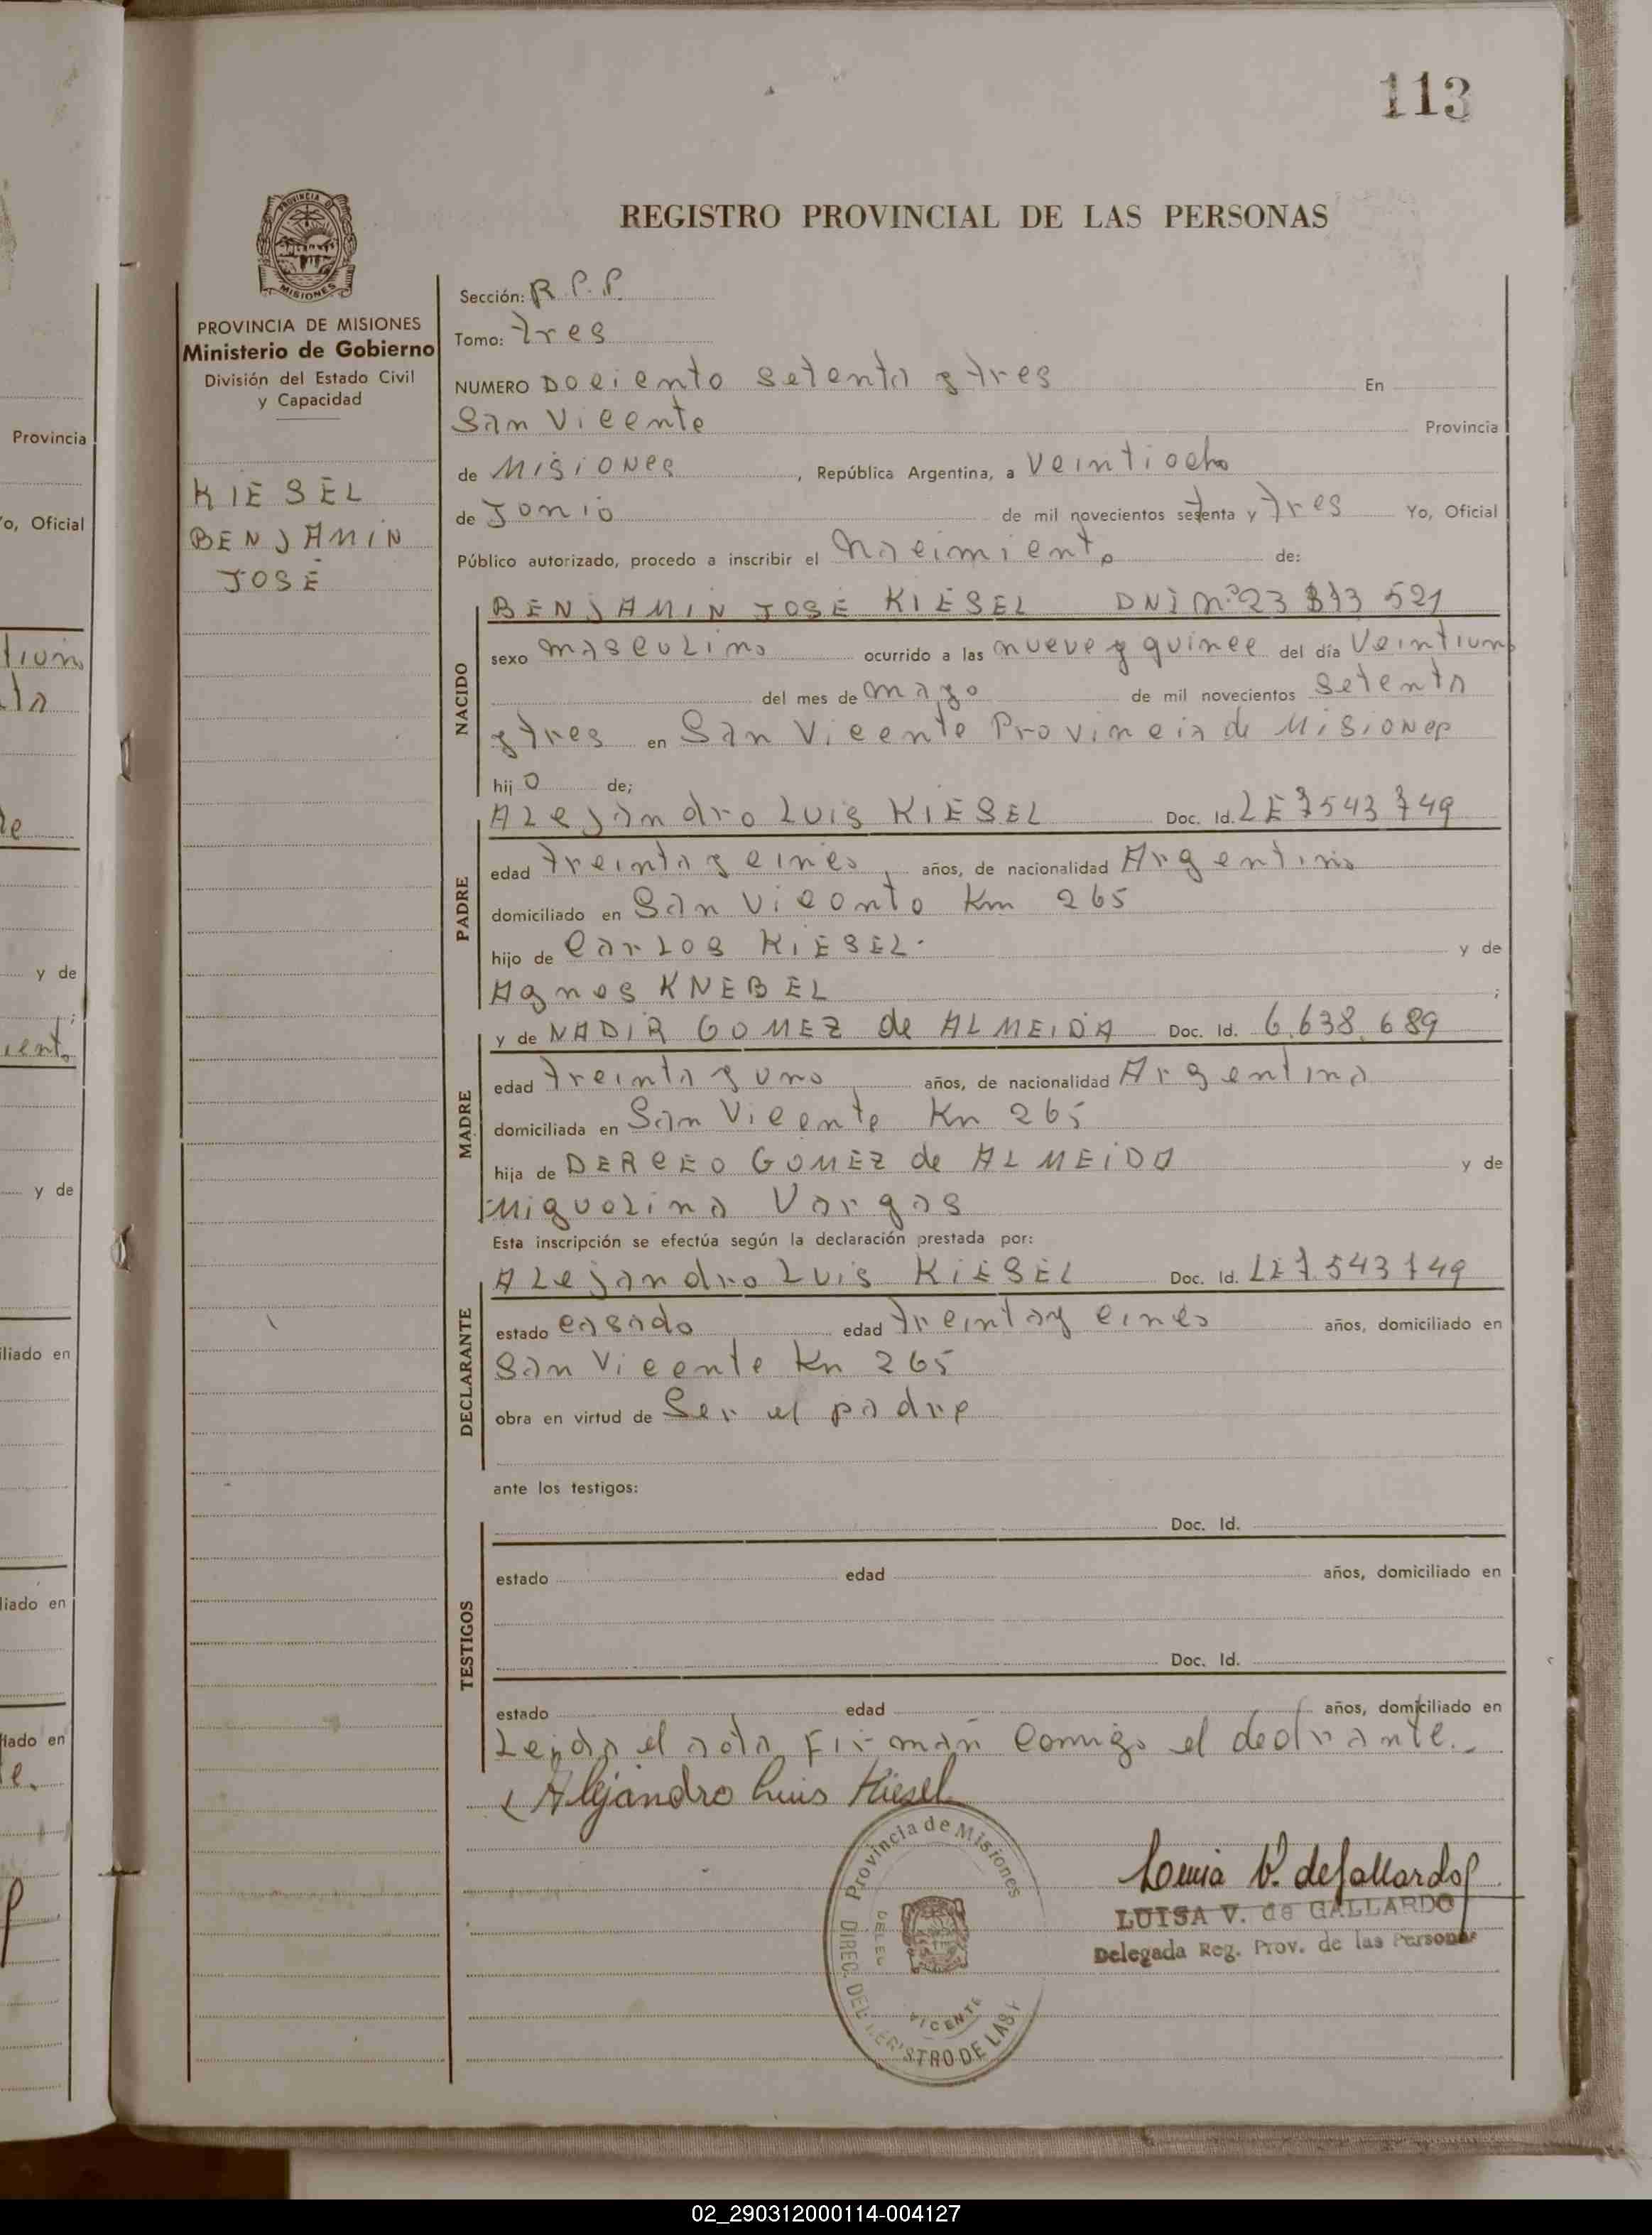 113
REGISTRO PROVINCIAL DE LAS PERSONAS
PROVINCIA DE MISIONES
PROVINCIA DE MISIONES
Ministerio de Gobierno
División del Estado Civil
y Capacidad
KIESEL
BENJAMIN
JOSÉ
Sección: R.P.P.
Tomo: tres
NUMERO Dociento setenta y tres En
San Vicente Provincia
de Misiones, República Argentina, a Veintiocho
de Junio de mil novecientos setenta y tres Yo, Oficial
Público autorizado, procedo a inscribir el nacimiento de:
NACIDO
BENJAMIN JOSÉ KIESEL DNI Nº 23 813 521
sexo masculino ocurrido a las nueve y quince del día Veintiuno
del mes de mayo de mil novecientos setenta
y tres en San Vicente Provincia de Misiones
hijo de;
PADRE
Alejandro Luis KIESEL Doc. Id. LE 7543749
edad treinta y cinco años, de nacionalidad Argentino
domiciliado en San Vicente Km 265
hijo de Carlos KIESEL. y de
Agnes KNEBEL ;
MADRE
y de NADIR GOMEZ de ALMEIDA Doc. Id. 6.638.689
edad treinta y uno años, de nacionalidad Argentina
domiciliada en San Vicente Km 265
hija de DERCEO GOMEZ de ALMEIDA y de
Miguelina Vargas
Esta inscripción se efectúa según la declaración prestada por:
DECLARANTE
Alejandro Luis KIESEL Doc. Id. LE 7.543749
estado casado edad treinta y cinco años, domiciliado en
San Vicente Km 265
obra en virtud de Ser el padre
ante los testigos:
TESTIGOS
Doc. Id.
estado edad años, domiciliado en
Doc. Id.
estado edad años, domiciliado en
Leida el acta, firman conmigo el declarante.-
Alejandro Luis Kiesel
Provincia de Misiones
VICENTE
Luisa V. de Gallardo
LUISA V. de GALLARDO
Delegada Reg. Prov. de las Personas
Provincia
Yo, Oficial
y de
;
y de
iliado en
liado en
liado en
02_290312000114-004127